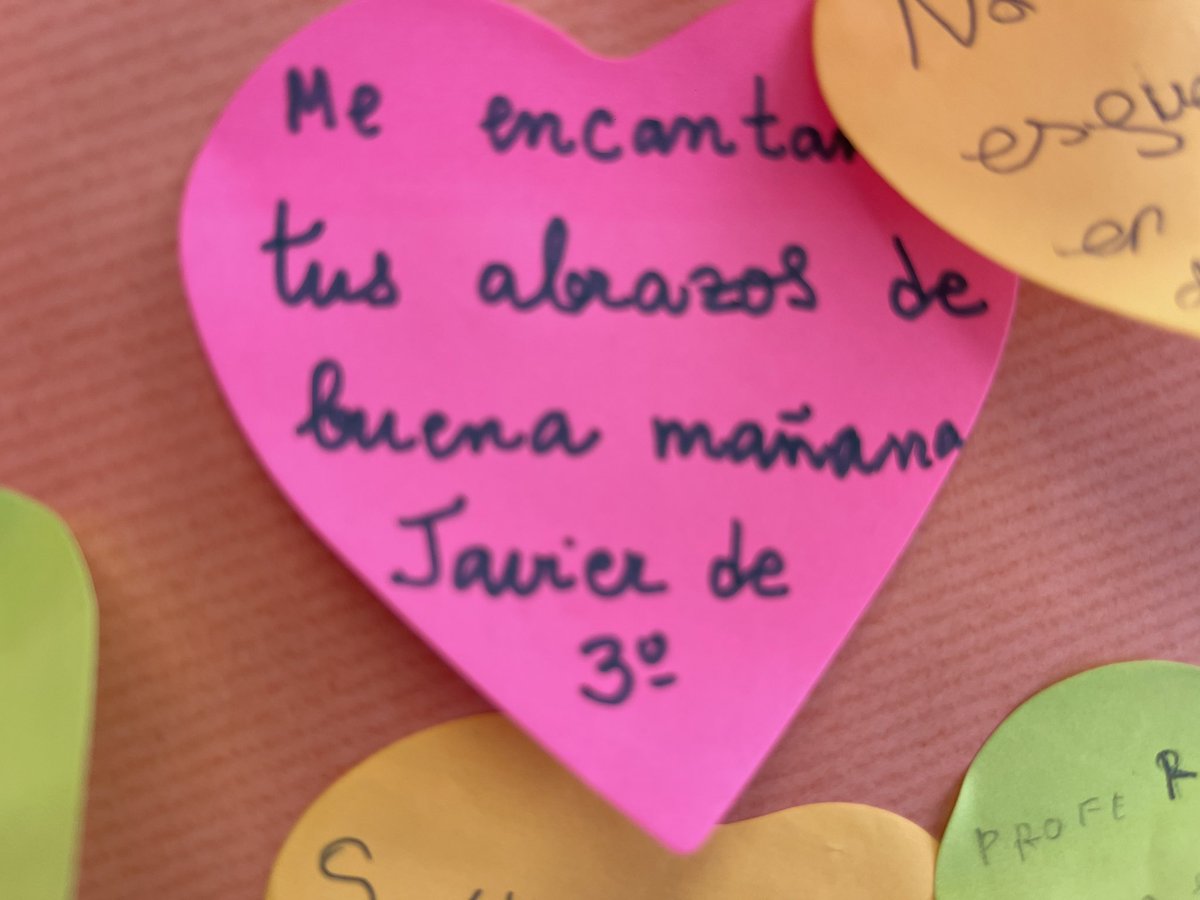 Me encantan
tus abrazos de
buena mañana
Javier de
3º
er
PROFE R
S